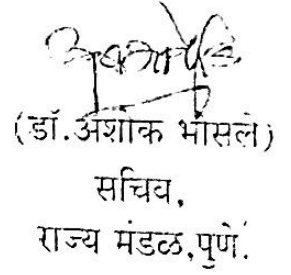 (डॉ.अशोक भोसले)
सचिव,
राज्य मंडळ,पुणे.